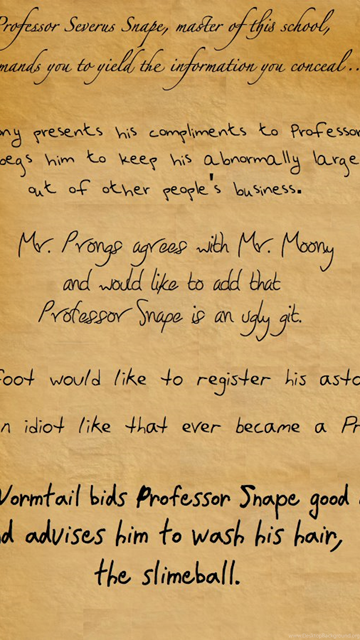 Professor Severus Snape, master of this school,
mands you to yield the information you conceal...
ony presents his compliments to Professor
begs him to keep his abnormally large
out of other people's business.
Mr. Prongs agrees with Mr. Moony
and would like to add that
Professor Snape is an ugly git.
foot would like to register his asto
n idiot like that ever became a Pr
Wormtail bids Professor Snape good
d advises him to wash his hair,
the slimeball.